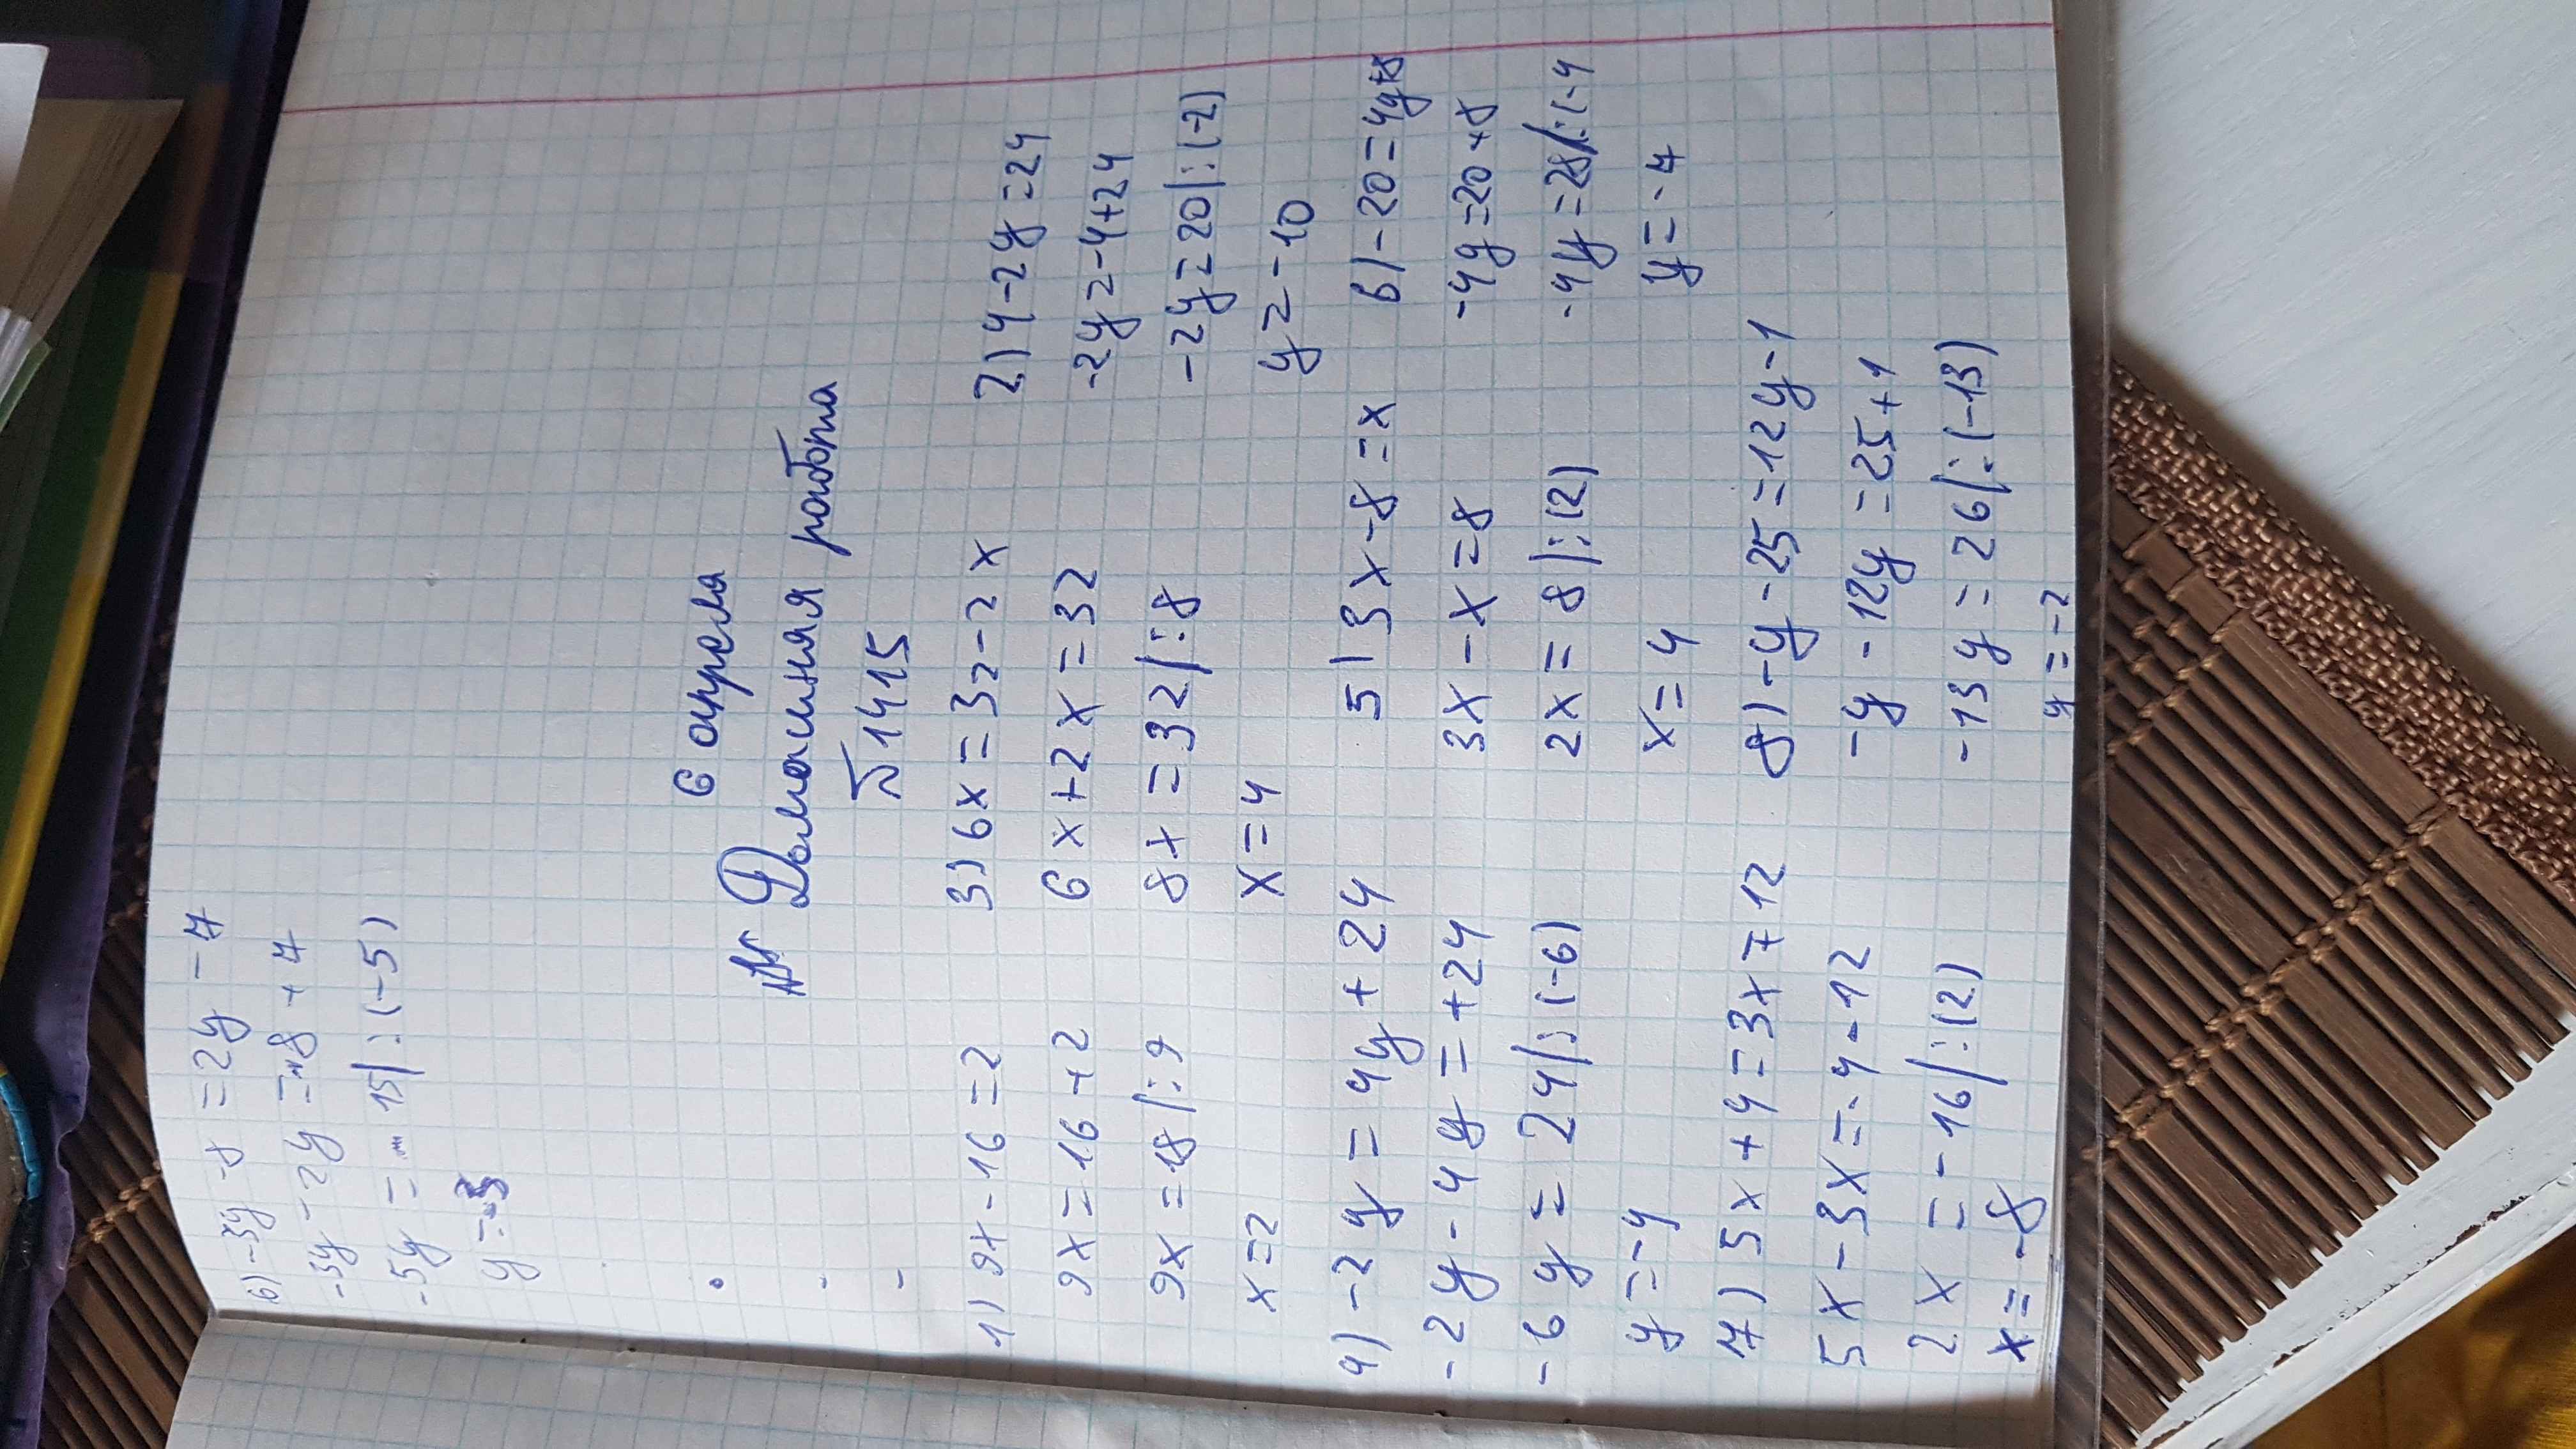 6) -3y-8=2y-7
-3y-2y=+8+7
-5y=15|:(-5)
y=-3
6 апреля
Домашняя работа
№1415
1) 9x-16=2
9x=16+2
9x=18|:9
x=2
3) 6x=32-2x
6x+2x=32
8x=32|:8
x=4
2) 4-2y=24
-2y=-4+24
-2y=20|:(-2)
y=-10
4) -2y=4y+24
-2y-4y=+24
-6y=24|:(-6)
y=-4
5) 3x-8=x
3x-x=8
2x=8|:(2)
x=4
6) -20=4y+8
-4y=20+8
-4y=28|:(-4
y=-7
7) 5x+4=3x-12
5x-3x=-4-12
2x=-16|:(2)
x=-8
8) -y-25=12y-1
-y-12y=25+1
-13y=26|:(-13)
y=-2